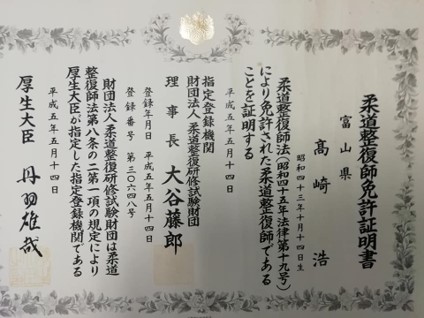 柔道整復師免許証明書
富山県
髙崎浩
昭和四十三年十月十四日生
柔道整復師法（昭和四十五年法律第十九号）
により免許された柔道整復師である
ことを証明する
平成五年五月十四日
指定登録機関
財団法人 柔道整復研修試験財団
理事長 大谷藤郎
登録年月日 平成五年五月十四日
登録番号 第三〇六四八号
財団法人柔道整復研修試験財団は柔道
整復師法第八条の二第一項の規定により
厚生大臣が指定した指定登録機関である
平成五年五月十四日
厚生大臣 丹羽雄哉